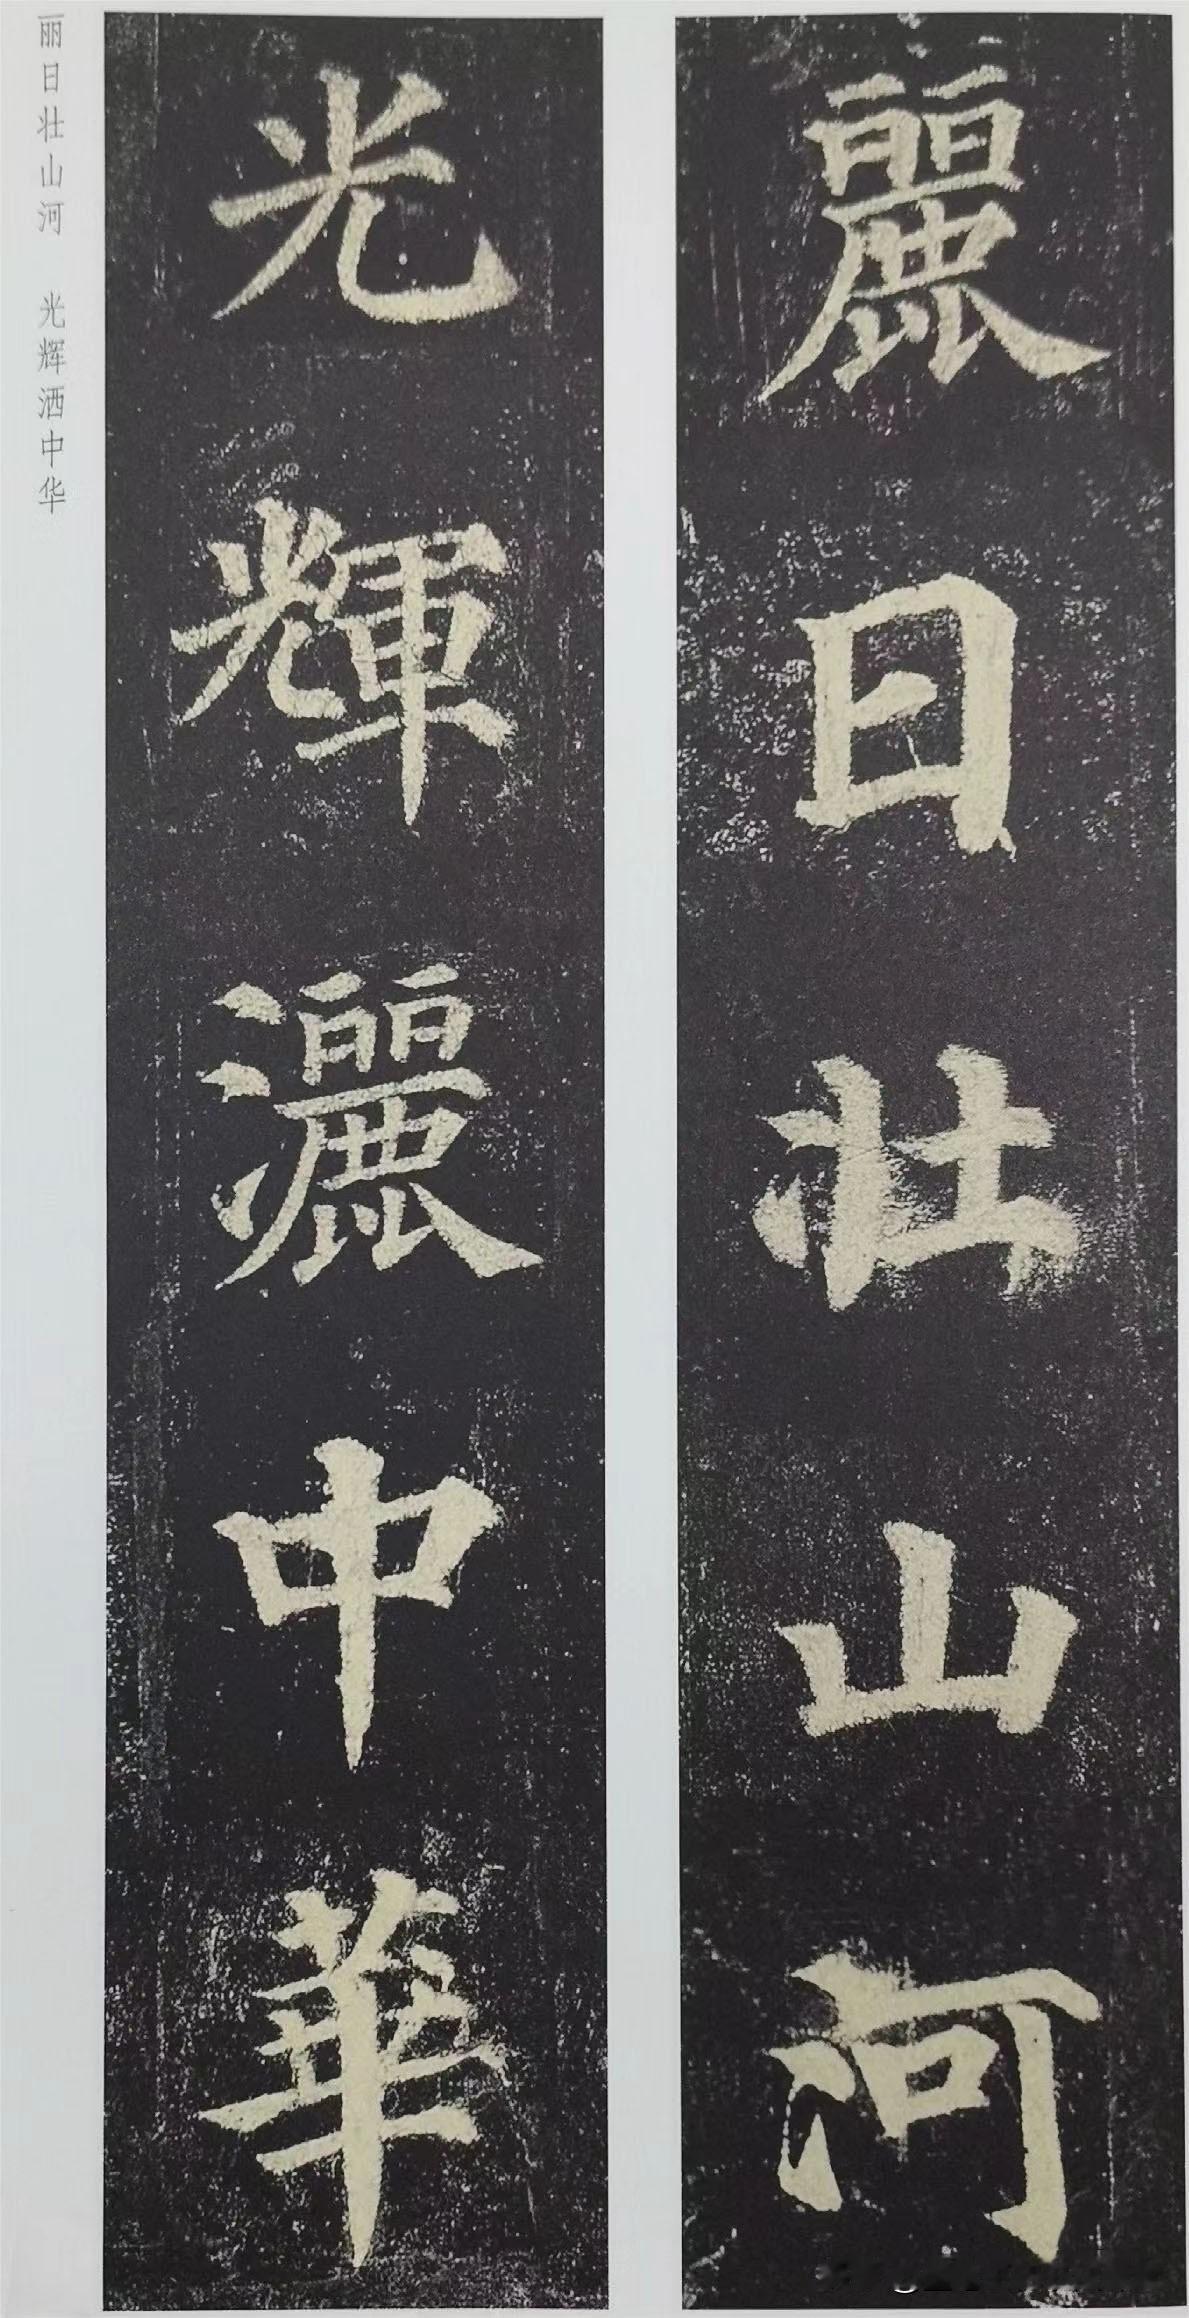 麗日壯山河
光輝灑中華
丽日壮山河 光辉洒中华